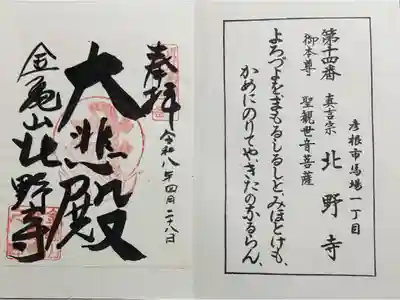 奉拝
令和八年四月二十八日
大悲殿
金亀山北野寺
彦根市馬場一丁目
第十四番 真言宗 北野寺
御本尊 聖観世音菩薩
よろづよをまもるしるしと、みほとけも、
かめにのりてや、きたのなるらん、